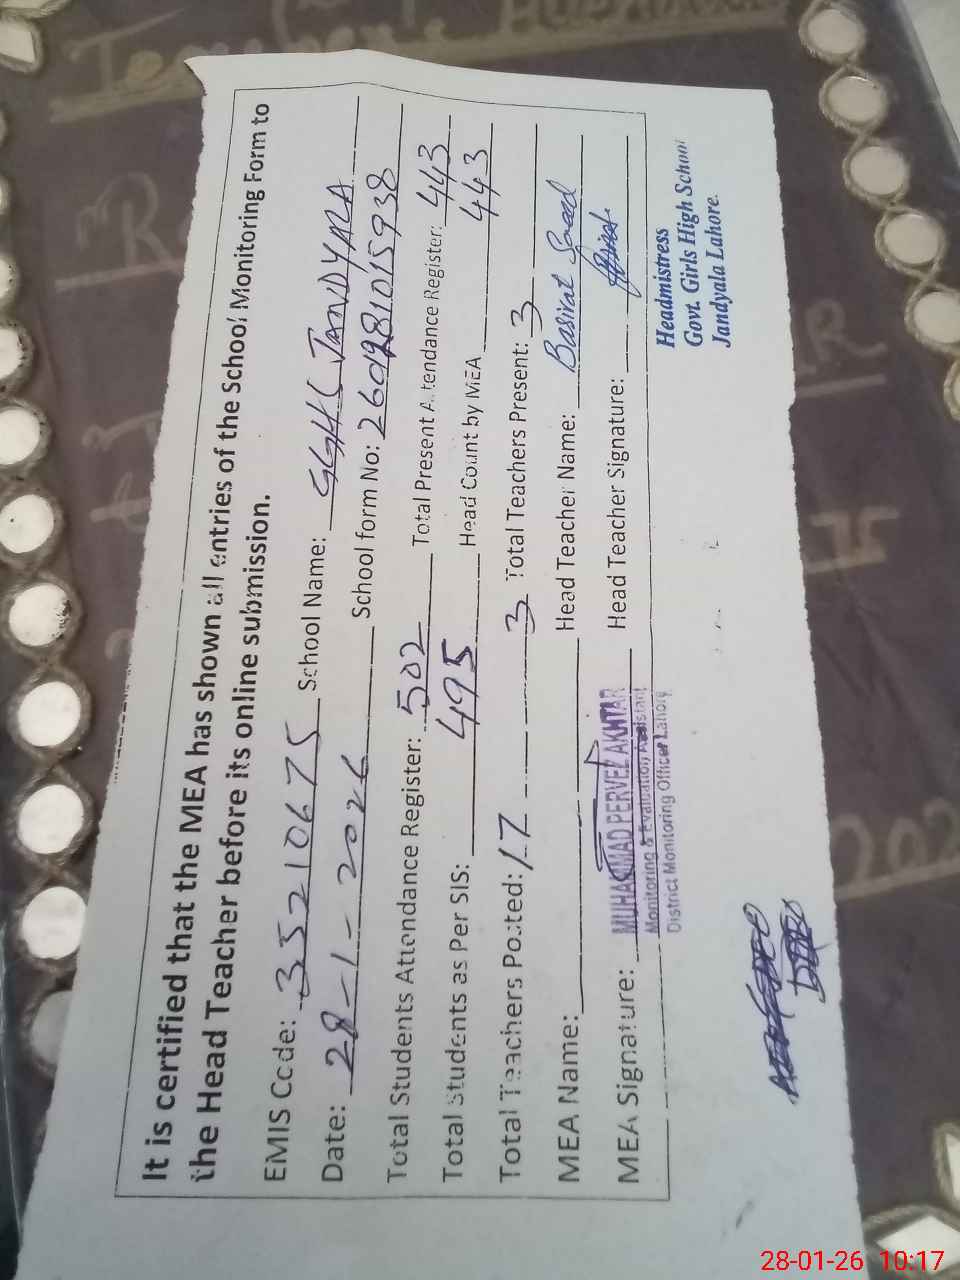 It is certified that the MEA has shown all entries of the School Monitoring Form to
the Head Teacher before its online submission.
EMIS Code: 35210675 School Name: GGHS JANDYALA
Date: 28-1-2026 School form No: 2601281015938
Total Students Attendance Register: 502 Total Present Attendance Register: 443
Total Students as Per SIS: 495 Head Count by MEA 443
Total Teachers Posted: 17 3 Total Teachers Present: 3
MEA Name: Head Teacher Name: Basirat Saeed
MEA Signature: Head Teacher Signature:
MUHAMMAD PERVEZ AKHTAR
Monitoring & Evaluation Assistant
District Monitoring Officer Lahore
Headmistress
Govt. Girls High School
Jandyala Lahore.
28-01-26 10:17